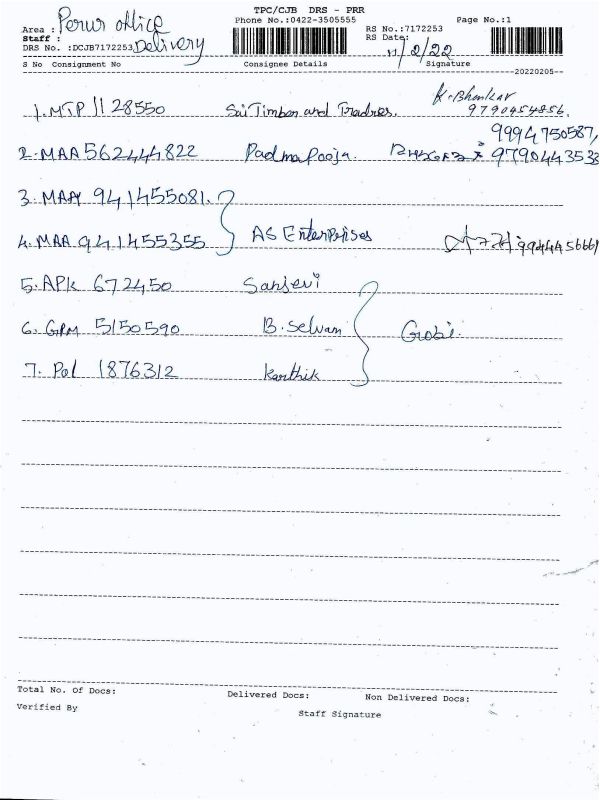 TPC/CJB DRS - PRR
Phone No.:0422-3505555 Page No.:1
Area : Perur office
RS No.:7172253
Staff : Delivery
RS Date: 11/2/22
DRS No. :DCJB7172253
S No Consignment No Consignee Details Signature
20220205
K. Bhaskar
1. MTP 1128550 Sai Timber and Tradres. 9790454856.
9994750587,
2. MAA 562444822 Padma Pooja. 9790443533
3. MAA 941455081.
4. MAA 941455355 AS Enterprises 9944456661
5. APK 672450 Sanjevi
6. GPM 5150590 B. Selvam Gobi.
7. Pol 1876312 Karthik
Total No. Of Docs: Delivered Docs: Non Delivered Docs:
Verified By Staff Signature